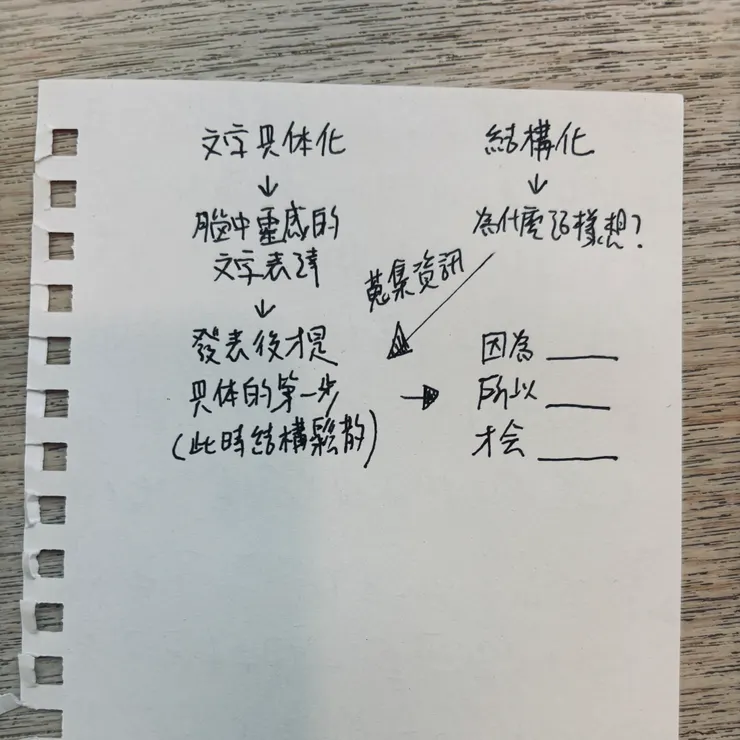 文字具体化
↓
腦中靈感的
文字表達
↓
發表後才是
具体的第一步
(此時結構鬆散)
結構化
↓
為什麼這樣想?
蒐集資訊
→
因為 ____
所以 ____
才会 ____